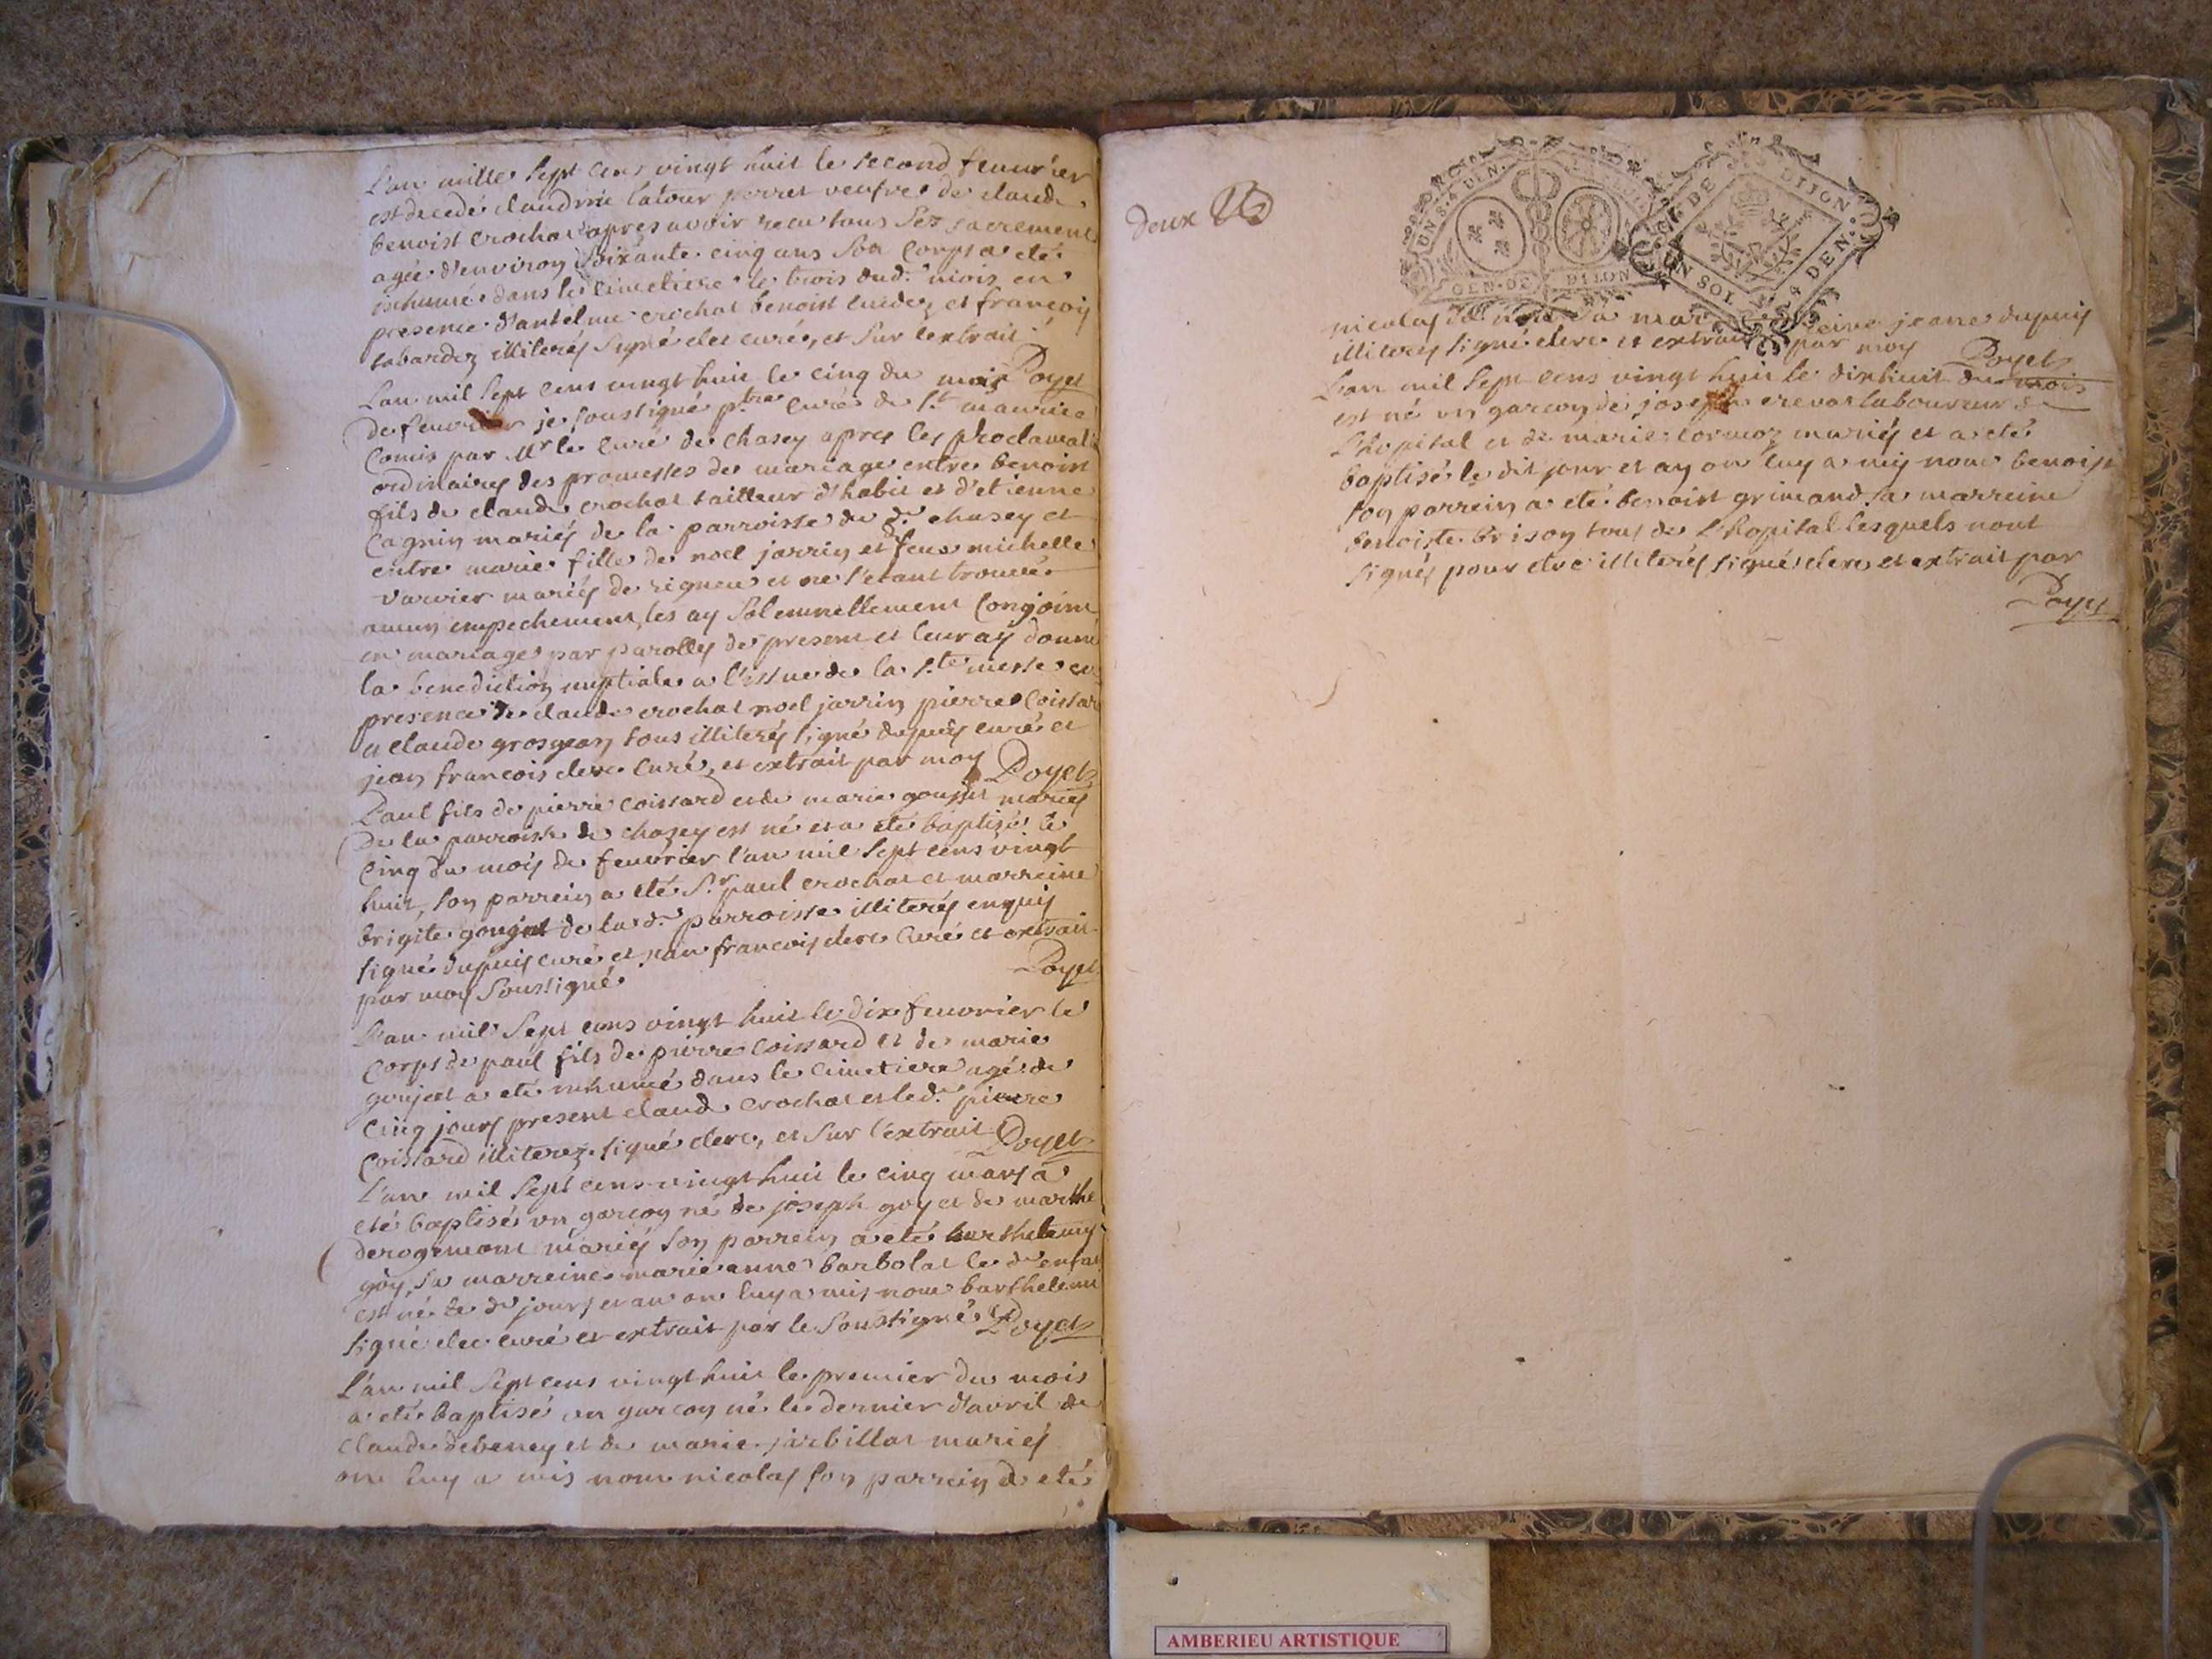 L'an mille sept cens vingt huit le second feuurier
est decedé claudine latour perret veufre de claude
benoist crochat apres avoir recu tous ses sacremens
agée d'environ soixante cinq ans son corps a eté
inhumé dans le cimetiere le trois dud. mois en
presence d'antelme crochat benoist et françois
tabardez illiterés signé clerc curé, et sur l'extrait
Poyet
L'an mil sept cens vingt huit le cinq du mois
de feuvrier je soussigné ptre curé de st maurice
comis par Mr le curé de chasey apres les proclamati
ordinaires des promesses de mariage entre benoist
fils de claude crochat tailleur d'habit et d'etienne
cagnin mariés de la parroisse du d. chasey et
entre marie fille de noel jarrin et feue michelle
varvier mariés de rigneu et ne s'etant trouvé
aucun empechement, les ay solemnellement conjoint
en mariage par parolles de present et leur ay donné
la benediction nuptiale a l'issue de la ste messe en
presence de claude crochat noel jarrin pierre Coissar
et claude grosgean tous illiterés signé dupuis curé et
jean francois clerc curé, et extrait par moy Poyet
Paul fils de pierre coissard et de marie goujet mariés
de la parroisse de chasey est né et a eté baptisé le
cinq du mois de feuvrier l'an mil sept cens vingt
huit, son parrein a eté Sr paul crochat et marreine
brigite goujet de la d. parroisse illiterés enquis
signé dupuis curé et jean francois clerc curé et extrait
par moy soussigné Poyet
L'an mil sept cens vingt huit le dix feuvrier le
corps de paul fils de pierre coissard et de marie
goujet a eté inhumé dans le cimetiere agé de
cinq jours present claude crochat et led. pierre
coissard illiterez signé clerc, et sur l'extrait Poyet
L'an mil sept cens vingt huit le cinq mars a
eté baptisé un garcon né de joseph goy et de marthe
derogemont mariés son parrein a eté barthelemy
goy, sa marreine marie anne barbolat le d. enfan
est né le d. jour et an on luy a mis nom barthelemi
signé clerc curé et extrait par le soussigné Poyet
L'an mil sept cens vingt huit le premier du mois
a eté baptisé un garcon né le dernier d'avril de
claude debeney et de marie jarbillat mariés
on luy a mis nom nicolas son parrein a eté
deux
UN S. 4 DEN.
GEN. DE DIJON
G. DE DIJON
UN SOL 4 DEN.
nicolas sa mar jeanne dupuis
illiterés signé clerc et extrait par moy Poyet
L'an mil sept cens vingt huit le dixhuit du mois
est né un garcon de joseph crevat laboureur de
L'hopital et de marie cormoz mariés et a eté
baptisé le dit jour et ay on luy a mis nom benoist
son parrein a eté benoist grimand sa marreine
benoiste brison tous de L'hopital lesquels nont
signés pour etre illiterés signé clerc et extrait par
Poyet
AMBERIEU ARTISTIQUE